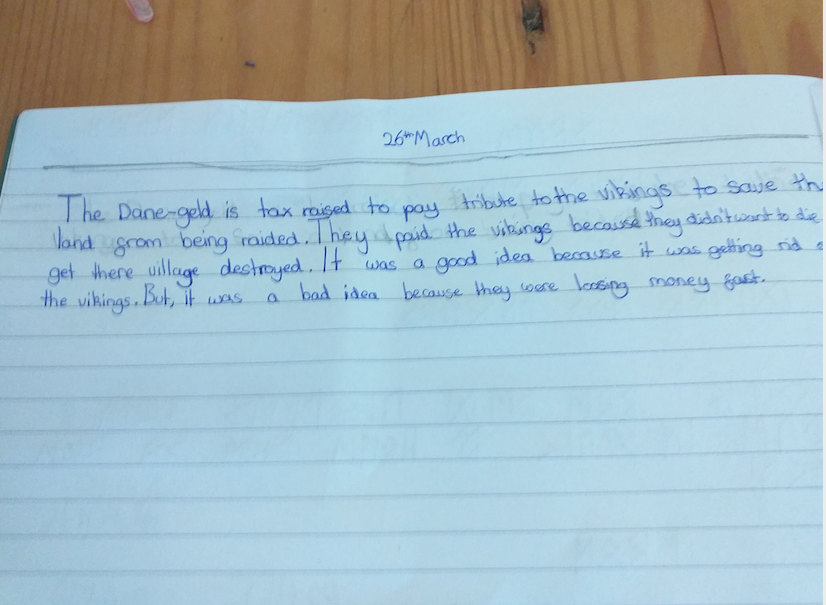 26th March
The Dane-geld is tax raised to pay tribute to the vikings to save
land from being raided. They paid the vikings because they didn't want to die
get there village destroyed. It was a good idea because it was getting rid
the vikings. But, it was a bad idea because they were loosing money fast.